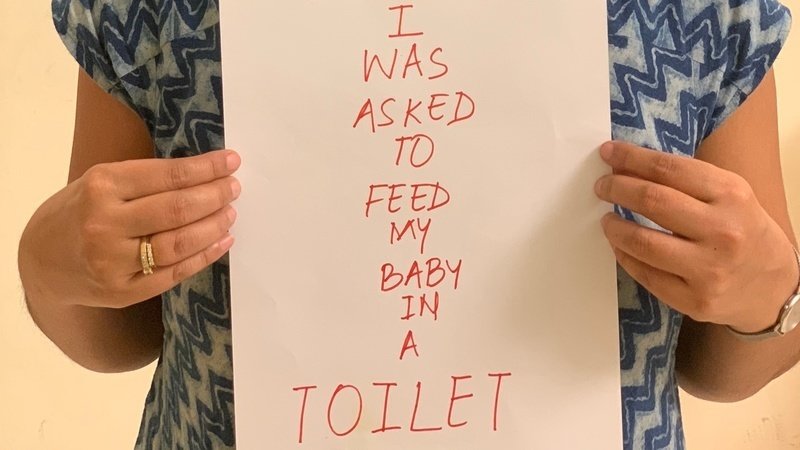 I
WAS
ASKED
TO
FEED
MY
BABY
IN
A
TOILET